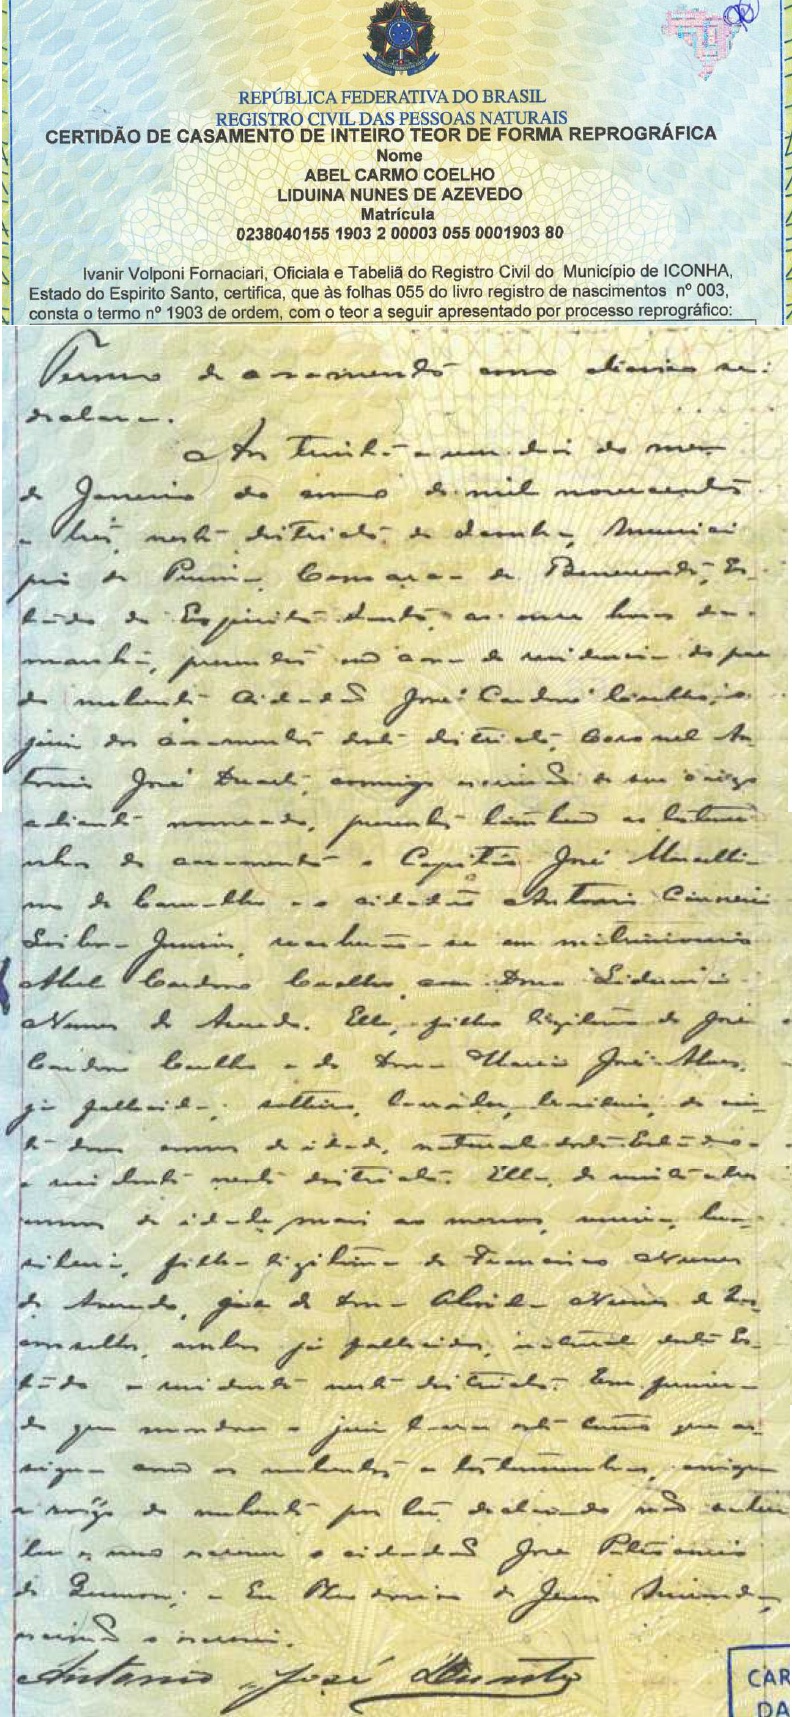 REPÚBLICA FEDERATIVA DO BRASIL
REGISTRO CIVIL DAS PESSOAS NATURAIS
CERTIDÃO DE CASAMENTO DE INTEIRO TEOR DE FORMA REPROGRÁFICA
Nome
ABEL CARMO COELHO
LIDUINA NUNES DE AZEVEDO
Matrícula
0238040155 1903 2 00003 055 0001903 80
Ivanir Volponi Fornaciari, Oficiala e Tabeliã do Registro Civil do Município de ICONHA,
Estado do Espirito Santo, certifica, que às folhas 055 do livro registro de nascimentos nº 003,
consta o termo nº 1903 de ordem, com o teor a seguir apresentado por processo reprográfico:
Termo de casamento como abaixo se
declara.
Aos trinta e um dia do mez
de Janeiro do anno de mil novecentos
e tres, neste districto de Iconha, Munici
pio de Piuma, Comarca de Benevente, Es-
tado do Espirito Santo, as onze horas da
manhã, presentes em casa de residencia do pae
do nubente Cidadão José Cardoso Coelho, o
juiz dos casamentos deste districto, Coronel An
tonio José Duarte, commigo escrivão de seu cargo
adiante nomeado, presentes tambem as testemu
nhas do casamento o Capitão José Marcelli
no de Carvalho e o cidadão Antonio
Junior, receberão-se em matrimonio
Abel Cardoso Coelho com Dona Liduina
Nunes de Azevedo. Elle, filho legitimo de José
Cardoso Coelho e de Dona Maria José Alves,
já fallecida, solteiro, lavrador, brasileiro, de vin-
te dous annos de idade, natural deste Estado
e residente neste districto. Ella, de vinte e
annos de idade mais ou menos, bra-
sileira, filha legitima de Francisco Nunes
de Azevedo, Dona Nunes de
ambos já fallecidos, natural deste Es-
tado e residente neste districto. Em firmeza
do que mandou o juiz lavrar este termo que as-
signa com os nubentes e testemunhas, assigna
a rogo da nubente por ter declarado não saber
ler e nem escrever o cidadão José
de e Eu de Jesus
escrivão o escrevi.
Antonio José Duarte
CAR
DA